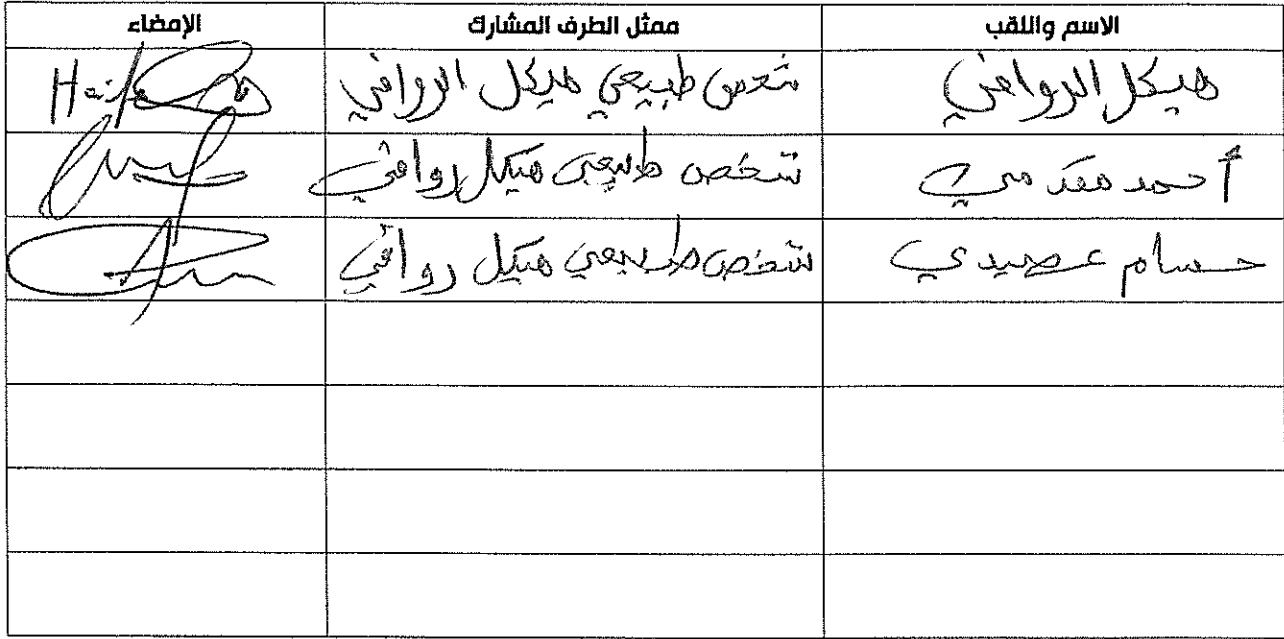 الاسم واللقب ممثل الطرف المشارك الإمضاء
هيكل الروافي شخص طبيعي هيكل الروافي
أحمد مقدمي شخص طبيعي هيكل روافي
حسام عصيدي شخص طبيعي هيكل روافي